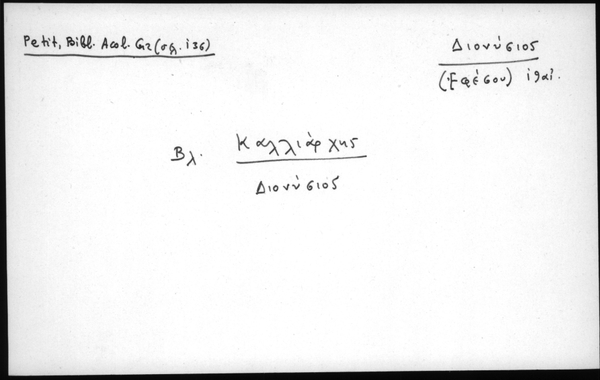 Petit, Bibl. Acol. Gr (σελ. 136)
Διονύσιος
(Ἐφέσου) ιθαί.
Βλ. Καλλιάρχης
Διονύσιος